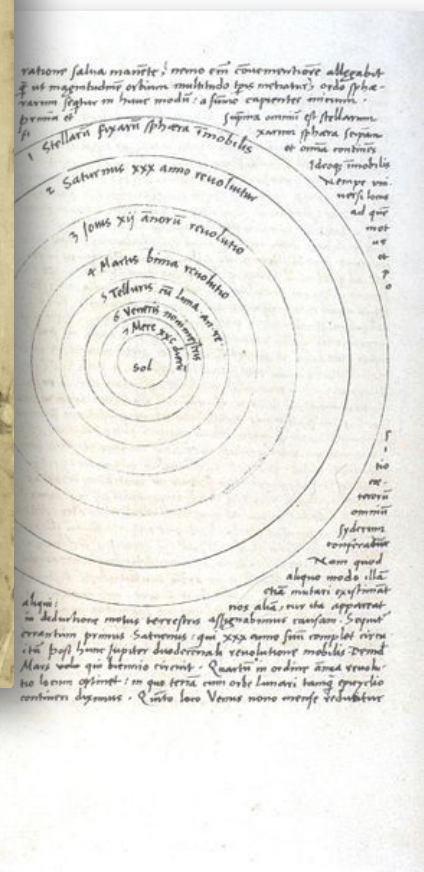 ratione salua manēte, nemo em̄ cōuenientiorē allegabit
q̃ ut magnitudinē orbium multitudo tp̄is metiatur, ordo sphæ-
rarum seqtur in hunc modū: a sūmo capientes initium.
prima et suprema omniū est stellarum
fixarum sphæra seipsam
et omnia continēs
Ideoq; īmobilis
Nempe vni-
uersi locus
ad quē
mot
us
et
p
o
1 Stellarū fixarū sphæra īmobilis
2 Saturnus xxx anno reuoluitur
3 Jouis xij annorū reuolutio
4 Martis bima reuolutio
5 Telluris cū Luna an. re.
6 Veneris nonimestris
7 Merc xxc dierū
Sol
s
i
tio
cæ
terorū
omniū
syderum
conferatur
Nam quod
aliquo modo illā
etiā mutari existimāt
aliqui: nos aliā, cur ita appareat
in deductione motus terrestris assignabimus causam. Sequitur
errantium primus Saturnus: qui xxx anno suū complet circu
itū. Post hunc Jupiter duodecennali reuolutione mobilis. Deinde
Mars vole qui biennio circuit. Quartū in ordine annua reuolu
tio locum optinet: in quo terrā cum orbe Lunari tanq̃ epicyclio
contineri diximus. Quinto loco Venus nono mense reducitur